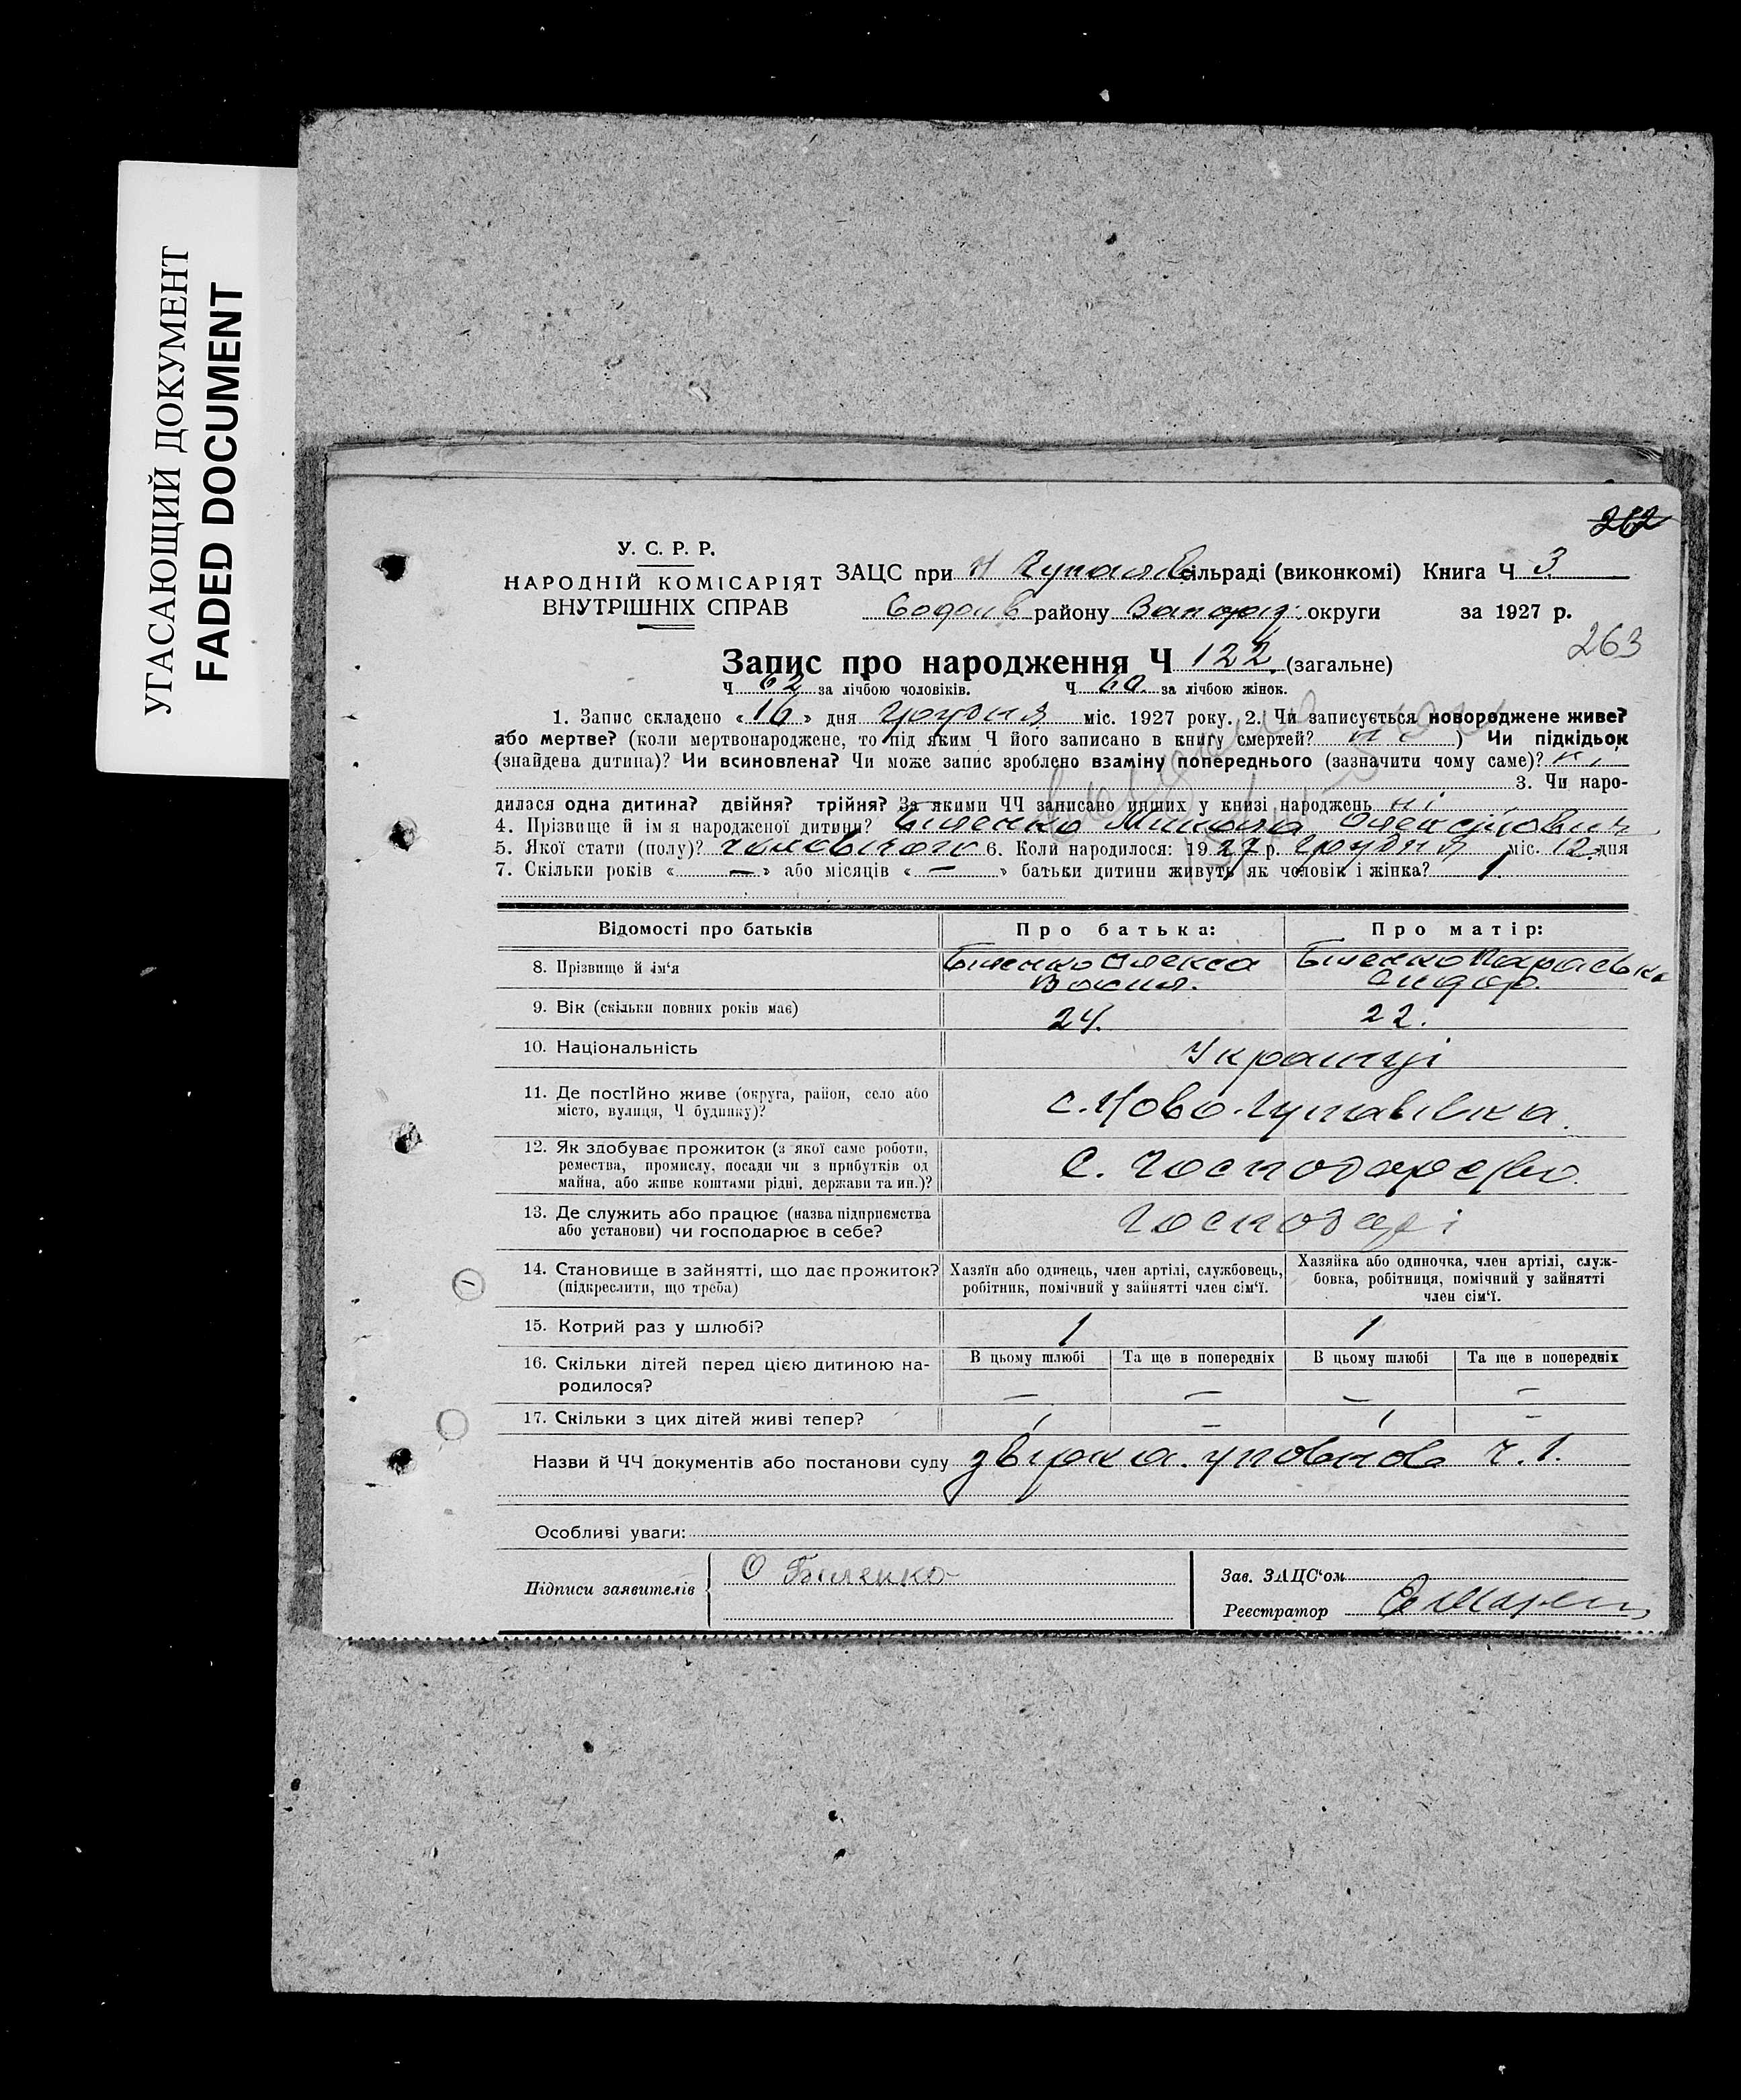 УГАСАЮЩИЙ ДОКУМЕНТ
FADED DOCUMENT
262
У. С. Р. Р.
НАРОДНІЙ КОМІСАРІЯТ
ВНУТРІШНІХ СПРАВ
ЗАЦС при Н сільраді (виконкомі) Книга Ч 3
району Запоріз. округи за 1927 р.
263
Запис про народження Ч 122 (загальне)
Ч 62 за лічбою чоловіків. Ч 60 за лічбою жінок.
1. Запис складено « 16 » дня грудня міс. 1927 року. 2. Чи записується новороджене живе?
або мертве? (коли мертвонароджене, то під яким Ч його записано в книгу смертей? ні ) Чи підкідьок
(знайдена дитина)? Чи всиновлена? Чи може запис зроблено взаміну попереднього (зазначити чому саме)? ні
3. Чи наро-
дилася одна дитина? двійня? трійня? За якими ЧЧ записано инших у книзі народжень ні
4. Прізвище й ім'я народженої дитини? Біленко Микола Олексійович
5. Якої стати (полу)? чоловічого 6. Коли народилося: 1927 р. Грудня міс. 12 дня
7. Скільки років « — » або місяців « — » батьки дитини живуть як чоловік і жінка? 1
Відомості про батьків Про батька: Про матір:
8. Прізвище й ім'я Біленко Олекса Васил. Біленко Параська Сидор.
9. Вік (скільки повних років має) 24. 22.
10. Національність Українці
11. Де постійно живе (округа, район, село або
місто, вулиця, Ч будинку)? с. Ново-
12. Як здобуває прожиток (з якої саме роботи,
ремества, промислу, посади чи з прибутків од
майна, або живе коштами рідні, держави та ин.)? С. Господарство.
13. Де служить або працює (назва підприємства
або установи) чи господарює в себе? Господарі
14. Становище в зайнятті, що дає прожиток?
(підкреслити, що треба)
Хазяїн або одинець, член артілі, службовець,
робітник, помічний у зайнятті член сім'ї.
Хазяйка або одиночка, член артілі, служ-
бовка, робітниця, помічний у зайнятті
член сім'ї.
15. Котрий раз у шлюбі? 1 1
16. Скільки дітей перед цією дитиною на-
родилося?
В цьому шлюбі Та ще в попередніх В цьому шлюбі Та ще в попередніх
— — — —
17. Скільки з цих дітей живі тепер? 1 — 1 —
Назви й ЧЧ документів або постанови суду ч. 1.
Особливі уваги:
Підписи заявителів О Біленко
Зав. ЗАЦС'ом
Реєстратор